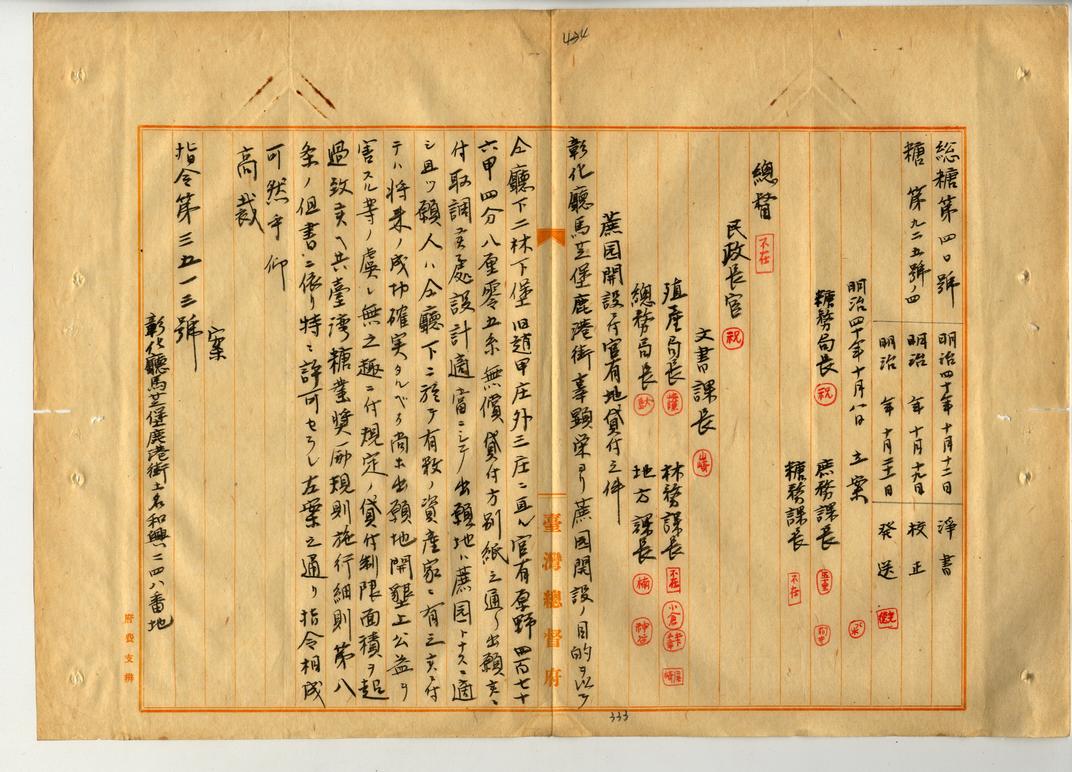 434
総糖第四〇號
糖 第九二五號ノ四
明治四十年十月十二日 淨書
明治 年 十月十九日 校正
明治 年 十月二十一日 發送
明治四十年十月八日 立案
糖務局長 祝 庶務課長
糖務課長 不在
總督 不在
民政長官 祝
文書課長 山崎
殖產局長 林務課長 不在 小倉
總務局長 地方課長 楠
蔗园開設ノ為官有地貸付之件
彰化廳馬芝堡鹿港街辜顯栄ヨリ蔗園開設ノ目的ヲ以テ
仝廳下二林下堡旧趙甲庄外三庄ニ亘ル官有原野四百七十
六甲四分八厘零五糸無償貸付方別紙之通リ出願ニ
付取調候處設計適當ニシテ出願地ハ蔗园トナスニ適
シ且ツ願人ハ仝廳下ニ於テ有数ノ資産家ニ有之候ニ付
テハ将来ノ成功確実タルベク尚出願地開墾上公益ヲ
害スル等ノ虞レ無之趣ニ付規定ノ貸付制限面積ヲ超
過致候ヘ共臺湾糖業奨励規則施行細則第八
条ノ但書ニ依リ特ニ許可セラレ左案之通リ指令相成
可然乎仰
高裁
案
指令第三五一三號
彰化廳馬芝堡鹿港街土名和興二四八番地
臺灣總督府
府費支辨
333